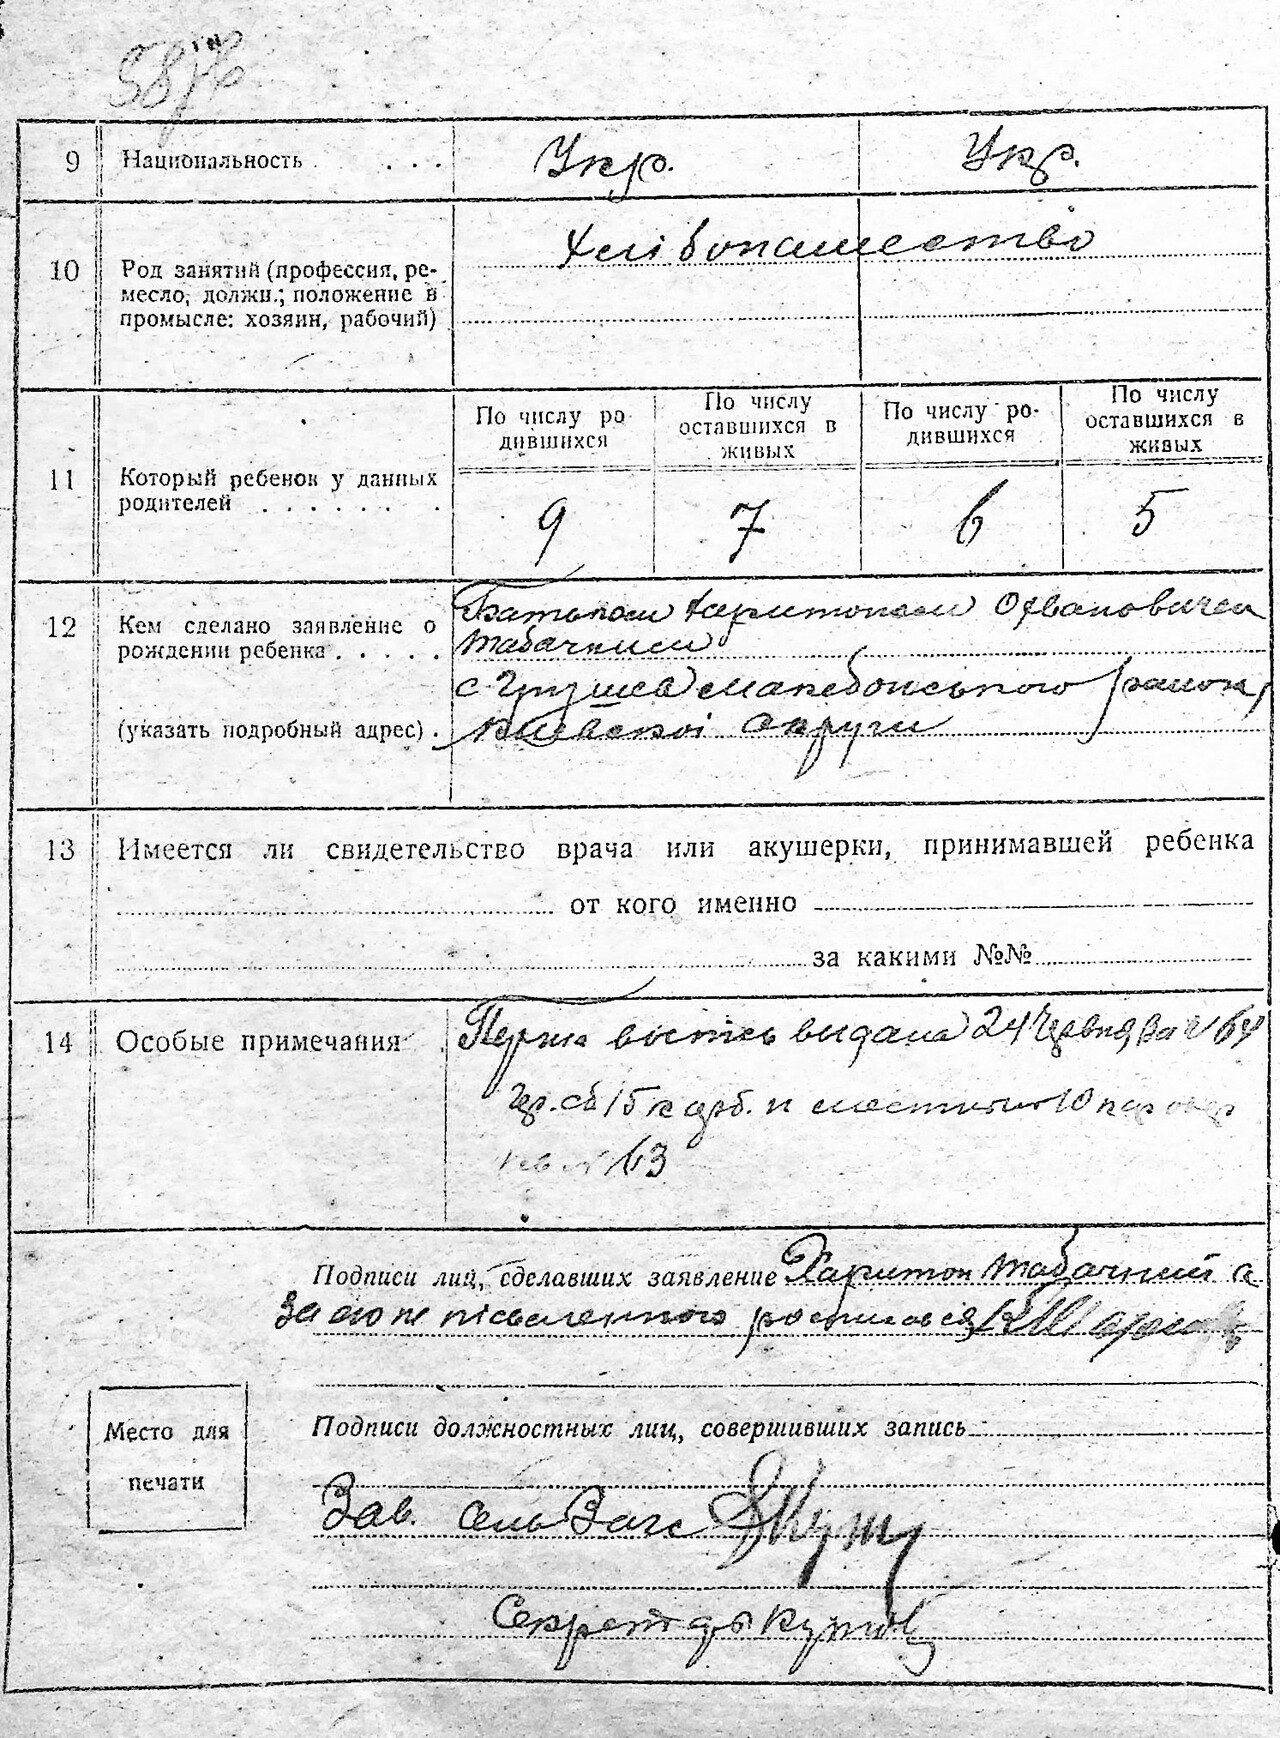 9 Национальность . . . . Укр. Укр.
10 Род занятий (профессия, ре-
месло, должн.; положение в
промысле: хозяин, рабочий)
Хлібопашество
11 Который ребенок у данных
родителей . . . . . . . .
По числу ро-
дившихся
По числу
оставшихся в
живых
По числу ро-
дившихся
По числу
оставшихся в
живых
9 7 6 5
12 Кем сделано заявление о
рождении ребенка . . . . .
(указать подробный адрес) .
Батьком Харитоном
Табачним
с Грушев Македонського район,
Киевскоі округи
13 Имеется ли свидетельство врача или акушерки, принимавшей ребенка
от кого именно
за какими №№
14 Особые примечания
Перша выпись выдана 24 Червня
63
Подписи лиц, сделавших заявление Харитон Табачний а
За его не пісьменного росписовся
Место для
печати
Подписи должностных лиц, совершивших запись
Зав. сель Загс
Секрет